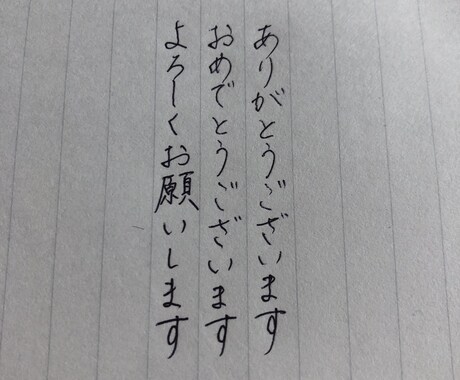 ありがとうございます
おめでとうございます
よろしくお願いします